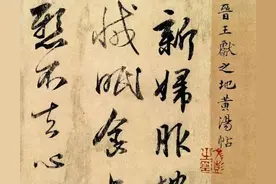 晉王獻之地黃湯帖
新婦服地
減眠食
懸不去心